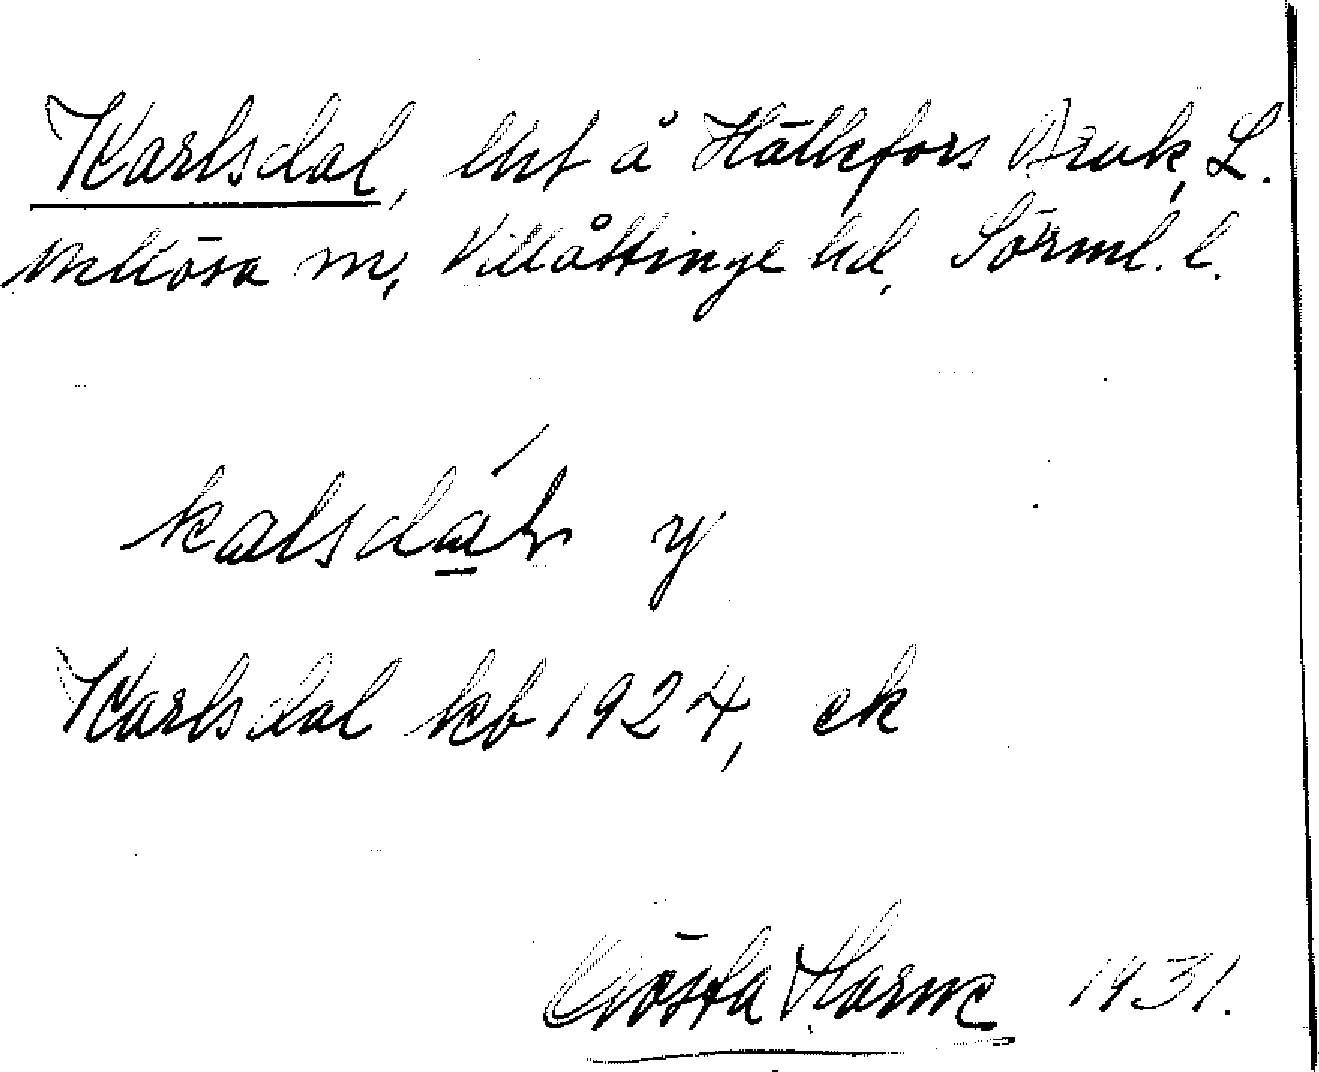 Karlsdal, lht å Hällefors Bruk, L.
Mellösa sn, Villåttinge hd, Sörml. l.
kalsdál y
Karlsdal kb 1924, ek
Gösta 1931.